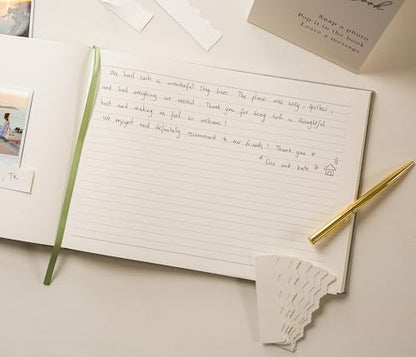 book
Snap a photo
Pop it in the book
Leave a message
We had such a wonderful stay here. The place was cosy, spotless,
and had everything we needed. Thank you for being such a thoughtful
host and making us feel so welcome!
We enjoyed and definitely recommend to our friends! Thank you
and Kate
, TK